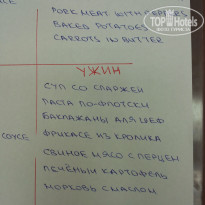 PORK MEAT WITH PEPPERS
BAKED POTATOES
CARROTS IN BUTTER
УЖИН
СУП СО СПАРЖЕЙ
ПАСТА ПО-ФЛОТСКИ
БАКЛАЖАНЫ ДЛЯ ШЕФ
ФРИКАСЕ ИЗ КРОЛИКА
COYCE
СВИНОЕ МЯСО С ПЕРЦЕМ
ПЕЧЁНЫЙ КАРТОФЕЛЬ
МОРКОВЬ С МАСЛОМ
TopHotels